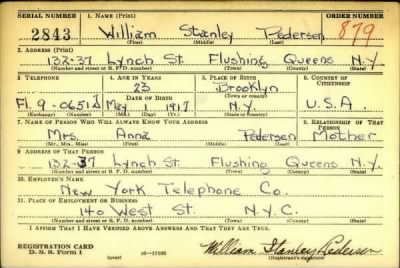 SERIAL NUMBER 1. NAME (Print) ORDER NUMBER
2843 William Stanley Pedersen 879
(First) (Middle) (Last)
2. ADDRESS (Print)
132-37 Lynch St. Flushing Queens N.Y.
(Number and street or R. F. D. number) (Town) (County) (State)
3. TELEPHONE 4. AGE IN YEARS 5. PLACE OF BIRTH 6. COUNTRY OF CITIZENSHIP
23 Brooklyn
DATE OF BIRTH (Town or county)
Fl. 9-0651 May 1 1917 N.Y. U.S.A.
(Exchange) (Number) (Mo.) (Day) (Yr.) (State or country)
7. NAME OF PERSON WHO WILL ALWAYS KNOW YOUR ADDRESS 8. RELATIONSHIP OF THAT PERSON
Mrs. Anna Pedersen Mother
(Mr., Mrs., Miss) (First) (Middle) (Last)
9. ADDRESS OF THAT PERSON
132-37 Lynch St. Flushing Queens N.Y.
(Number and street or R. F. D. number) (Town) (County) (State)
10. EMPLOYER'S NAME
New York Telephone Co.
11. PLACE OF EMPLOYMENT OR BUSINESS
140 West St. N.Y.C.
(Number and street or R. F. D. number) (Town) (County) (State)
I AFFIRM THAT I HAVE VERIFIED ABOVE ANSWERS AND THAT THEY ARE TRUE.
REGISTRATION CARD
D. S. S. Form 1 (over) William Stanley Pedersen
(Registrant's signature)